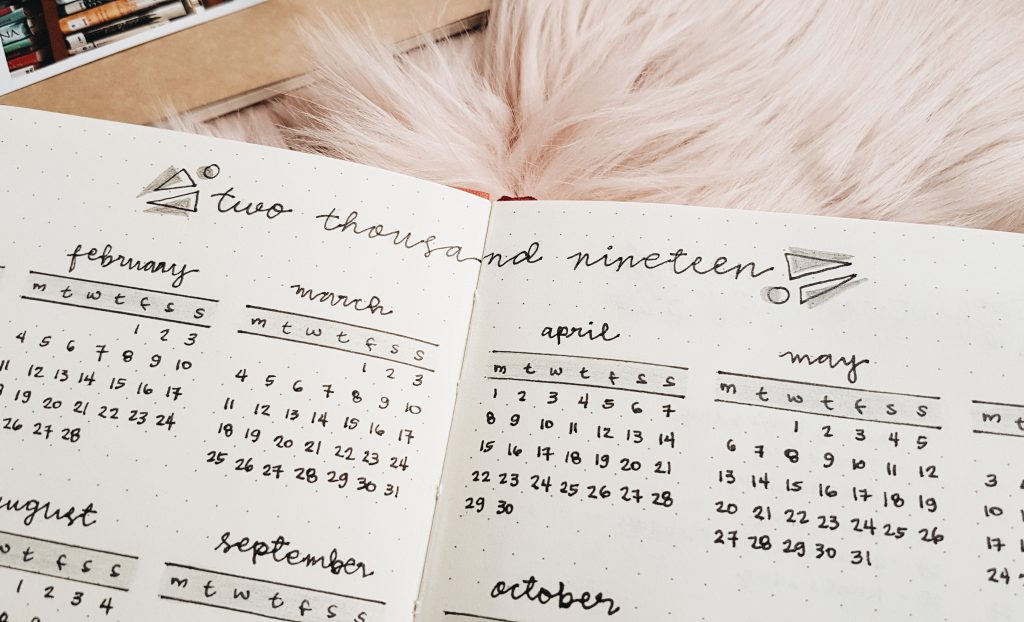 two thousand nineteen
february
m t w t f s s
1 2 3
4 5 6 7 8 9 10
11 12 13 14 15 16 17
19 20 21 22 23 24
26 27 28
march
m t w t f s s
1 2 3
4 5 6 7 8 9 10
11 12 13 14 15 16 17
18 19 20 21 22 23 24
25 26 27 28 29 30 31
april
m t w t f s s
1 2 3 4 5 6 7
8 9 10 11 12 13 14
15 16 17 18 19 20 21
22 23 24 25 26 27 28
29 30
may
m t w t f s s
1 2 3 4 5
6 7 8 9 10 11 12
13 14 15 16 17 18 19
20 21 22 23 24 25 26
27 28 29 30 31
m t
3
10
17
24
august
w t f s s
1 2 3 4
september
m t w t f s s
october